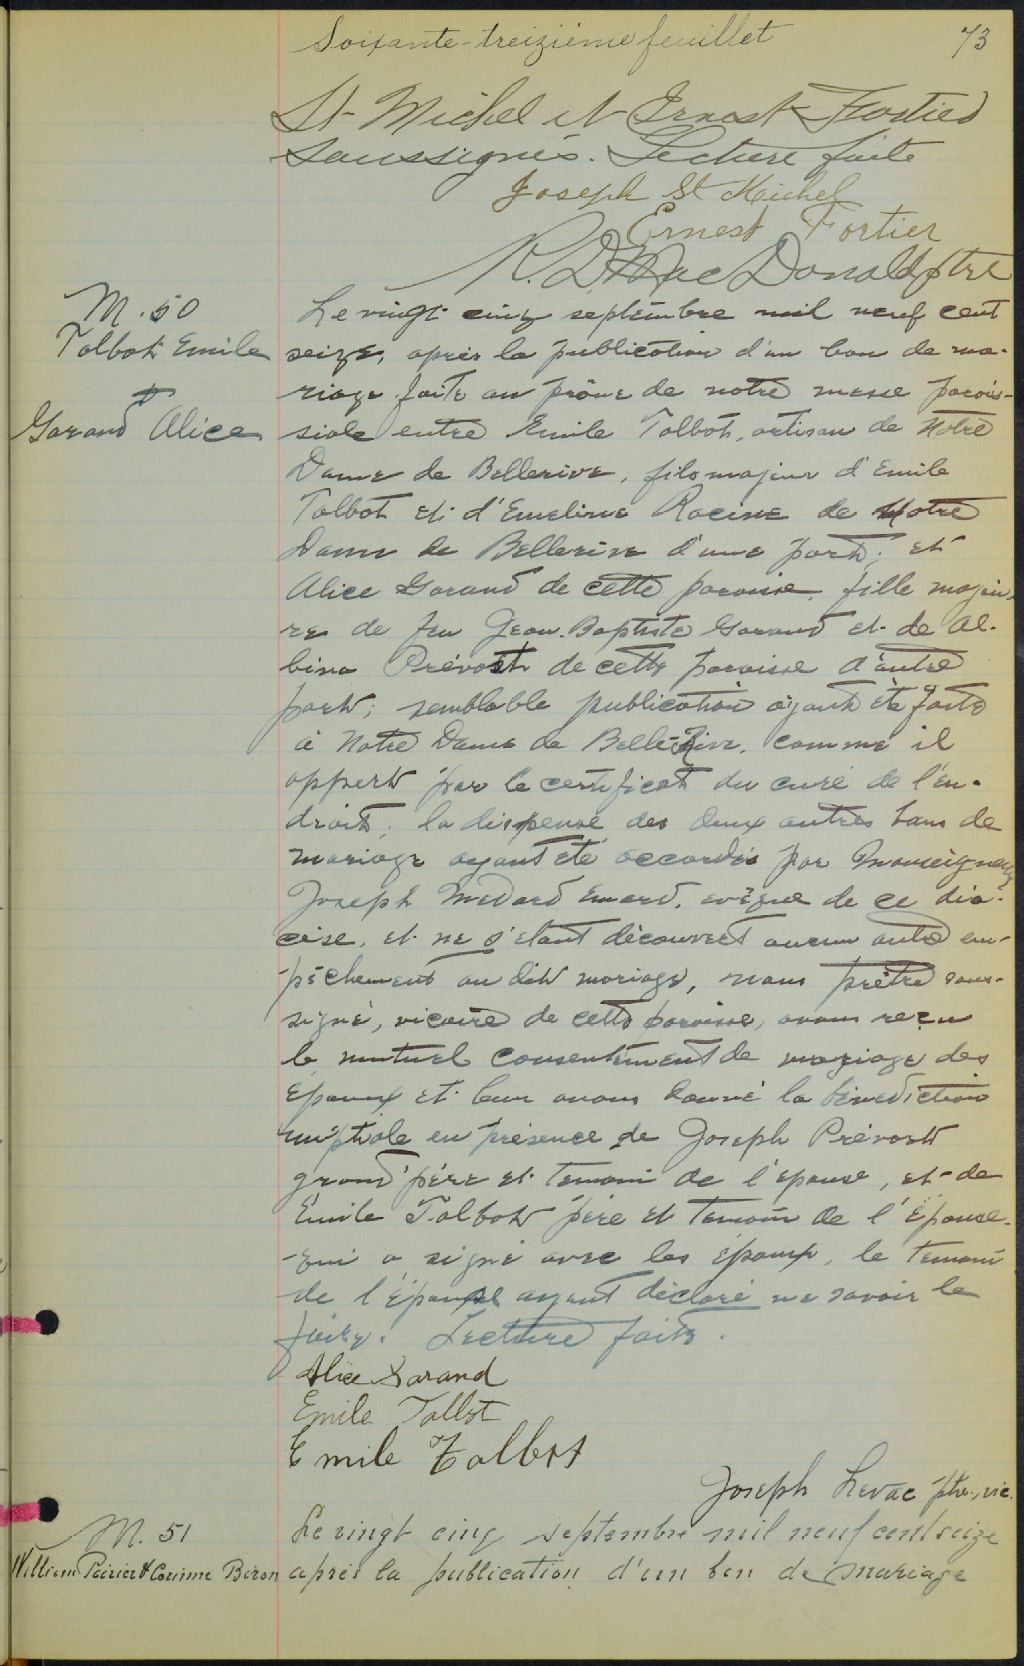 Soixante-treizième feuillet 73
St-Michel et Ernest Fortier
soussignés. Lecture faite
Joseph St Michel
Ernest Fortier
R. D. MacDonald ptre
M. 50
Talbot Emile
et
Garand Alice
Le vingt cinq septembre mil neuf cent
seize, après la publication d'un ban de ma-
riage faite au prône de notre messe parois-
siale entre Emile Talbot, artisan de Notre
Dame de Bellerive, fils majeur d'Emile
Talbot et d'Emeline Racine de Notre
Dame de Bellerive d'une part; et
Alice Garand de cette paroisse, fille majeu-
re de feu Jean-Baptiste Garand et de Al-
bina Prévost de cette paroisse d'autre
part; semblable publication ayant été faite
à Notre Dame de Bellerive, comme il
appert par le certificat du curé de l'en-
droit; la dispense des deux autres bans de
mariage ayant été accordés par Monseigneur
Joseph Medard Emard, evêque de ce dio-
cèse, et ne s'étant découvert aucun autre em-
pêchement au dit mariage, nous prêtre sous-
signé, vicaire de cette paroisse, avons reçu
le mutuel consentement de mariage des
époux et leur avons donné la bénédiction
nuptiale en présence de Joseph Prévost
grand'père et temoin de l'epouse, et de
Emile Talbot père et temoin de l'Epouse
qui a signé avec les époux, le temoin
de l'épouse ayant déclaré ne savoir le
faire. Lecture faite.
Alice Garand
Emile Talbot
Emile Talbot
Joseph Levac ptre, vic.
M. 51
William Poirier & Corinne Biron
Le vingt cinq septembre mil neuf cent seize
après la publication d'un ban de mariage